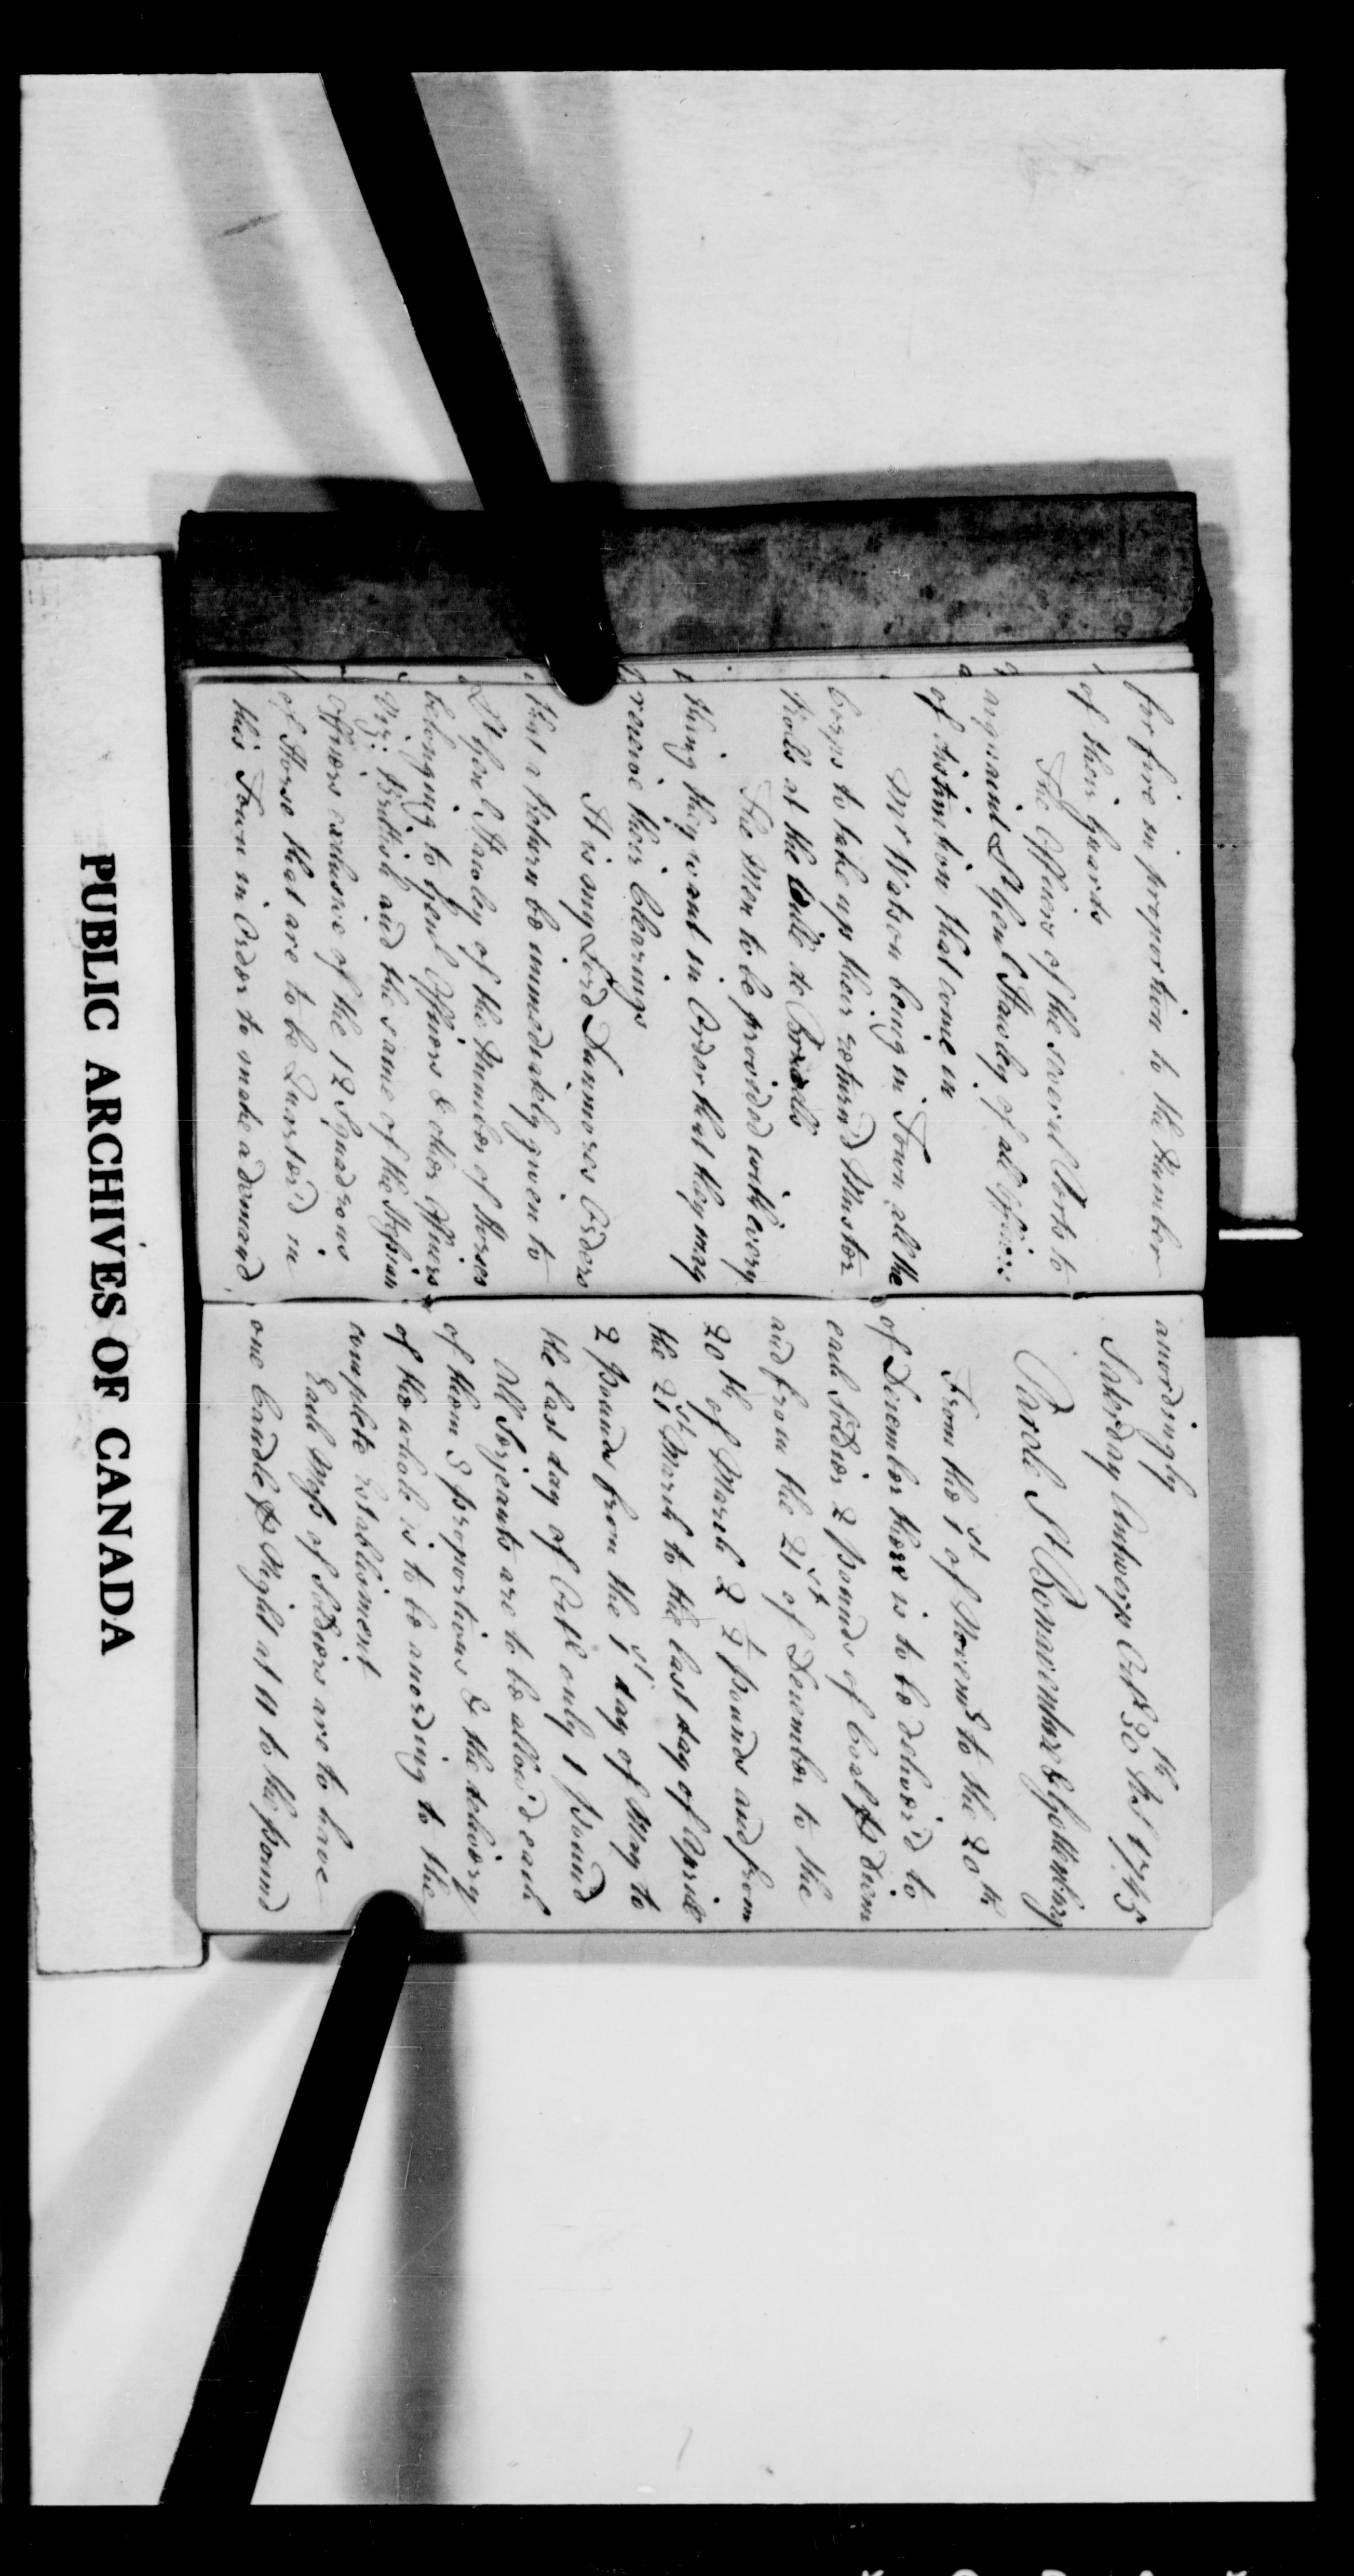 for fire in proportion to the Number
of their Guards
The Officers of the several Ports to
acquaint Lt Genl Hawley of all Officers
of distinction that come in
Mr Watson being in Town all the
Corps to take up their return'd Muster
Rolls at the
The Men to be provided with every
thing they want in Order that they may
receive their Clearings
It is my Lord Dunmores Orders
that a Return be immediately given to
Lt Genl Hawley of the Number of Horses
belonging to Genl Officers & other Officers
Viz: Brittish and the same of the Hessian
Officers exclusive of the 12 Squadrons
of Horse that are to be Quarter'd in
this Town in Order to make a demand
accordingly
Saterday Antwerp Octr 30th 1745
Parole St Bonaventure &
From the 1st of Novemr to the 20th
of December there is to be deliver'd to
each Soldier 2 pounds of Coal ⅌ Diem
and from the 21st of December to the
20th of March 2 ½ pounds and from
the 21st March to the last day of Aprile
2 pounds from the 1st day of May to
the last day of Octr only 1 pound
All Serjeants are to be allow'd each
of them 2 proportions & the delivery
of the whole is to be according to the
complete Establisment
Each Mess of Soldiers are to have
one Candle ⅌ Night at 11 to the pound
PUBLIC ARCHIVES OF CANADA